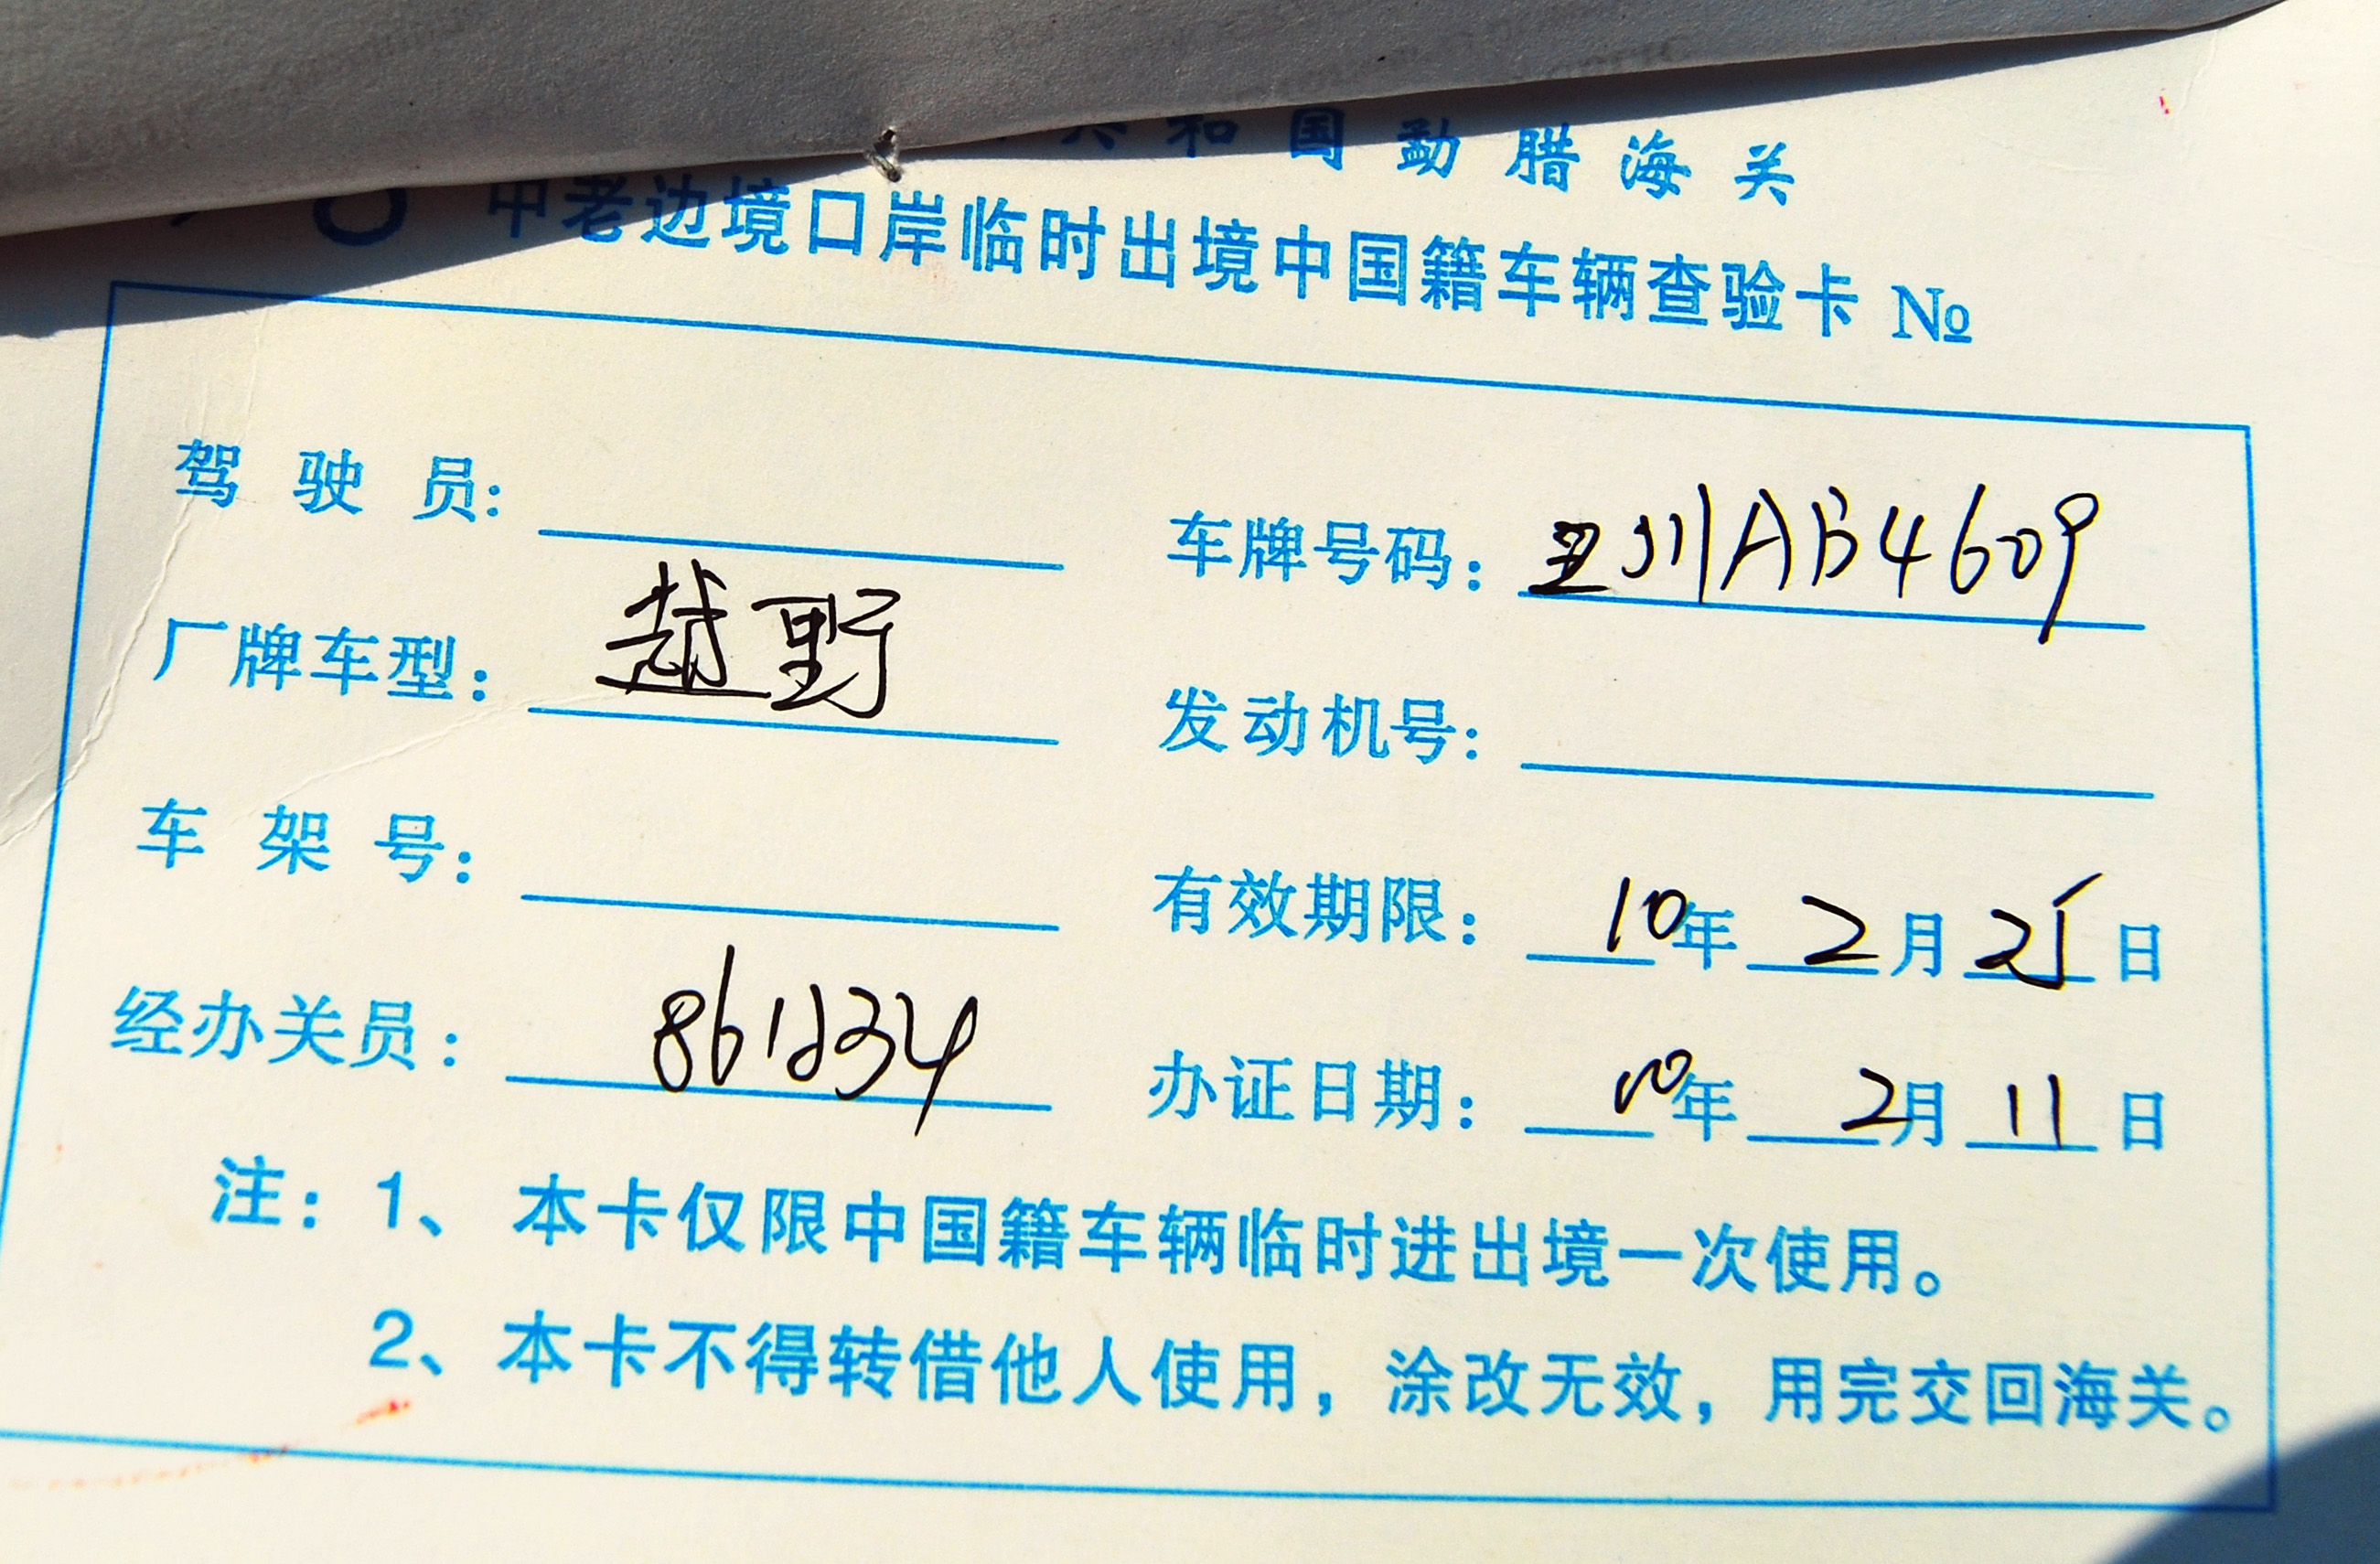 共和国勐腊海关
中老边境口岸临时出境中国籍车辆查验卡 №
驾驶员: 车牌号码: 川AB4609
厂牌车型: 越野 发动机号:
车架号: 有效期限: 10年 2月 25日
经办关员: 861234 办证日期: 10年 2月 11日
注: 1、本卡仅限中国籍车辆临时进出境一次使用。
2、本卡不得转借他人使用，涂改无效，用完交回海关。